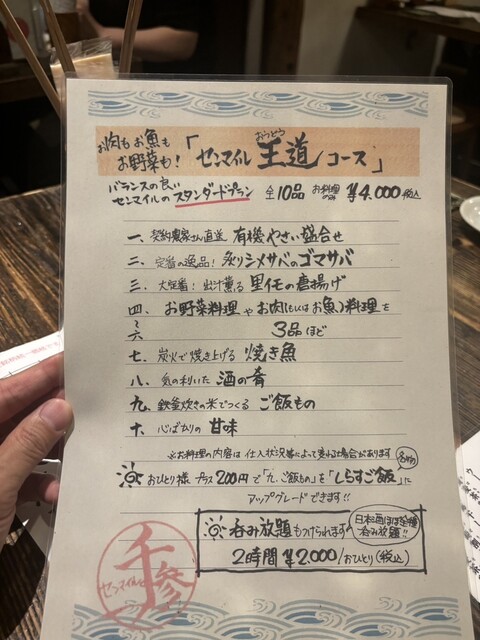 お肉もお魚も
お野菜も!
「センマイル王道コース」
おうどう
バランスの良い
センマイルのスタンダードプラン
全10品 お料理のみ ¥4.000税込
一、契約農家さん直送 有機やさい盛合せ
二、定番の逸品! 炙りシメサバのゴマサバ
三、大定番! 出汁薫る 里イモの唐揚げ
四、お野菜料理やお肉(もしくはお魚)料理を
〜
六 3品ほど
七、炭火で焼き上げる 焼き魚
八、気の利いた 酒の肴
九、鉄釜炊きの米でつくる ご飯もの
十、心ばかりの 甘味
※お料理の内容は仕入状況等によって変わる場合があります
名物
おひとり様 プラス200円で「九、ご飯もの」を「しらすご飯」に
アップグレードできます!!
呑み放題もつけられます
日本酒ほぼ全種
呑み放題!!
2時間 ¥2.000/おひとり(税込)
センマイル
千